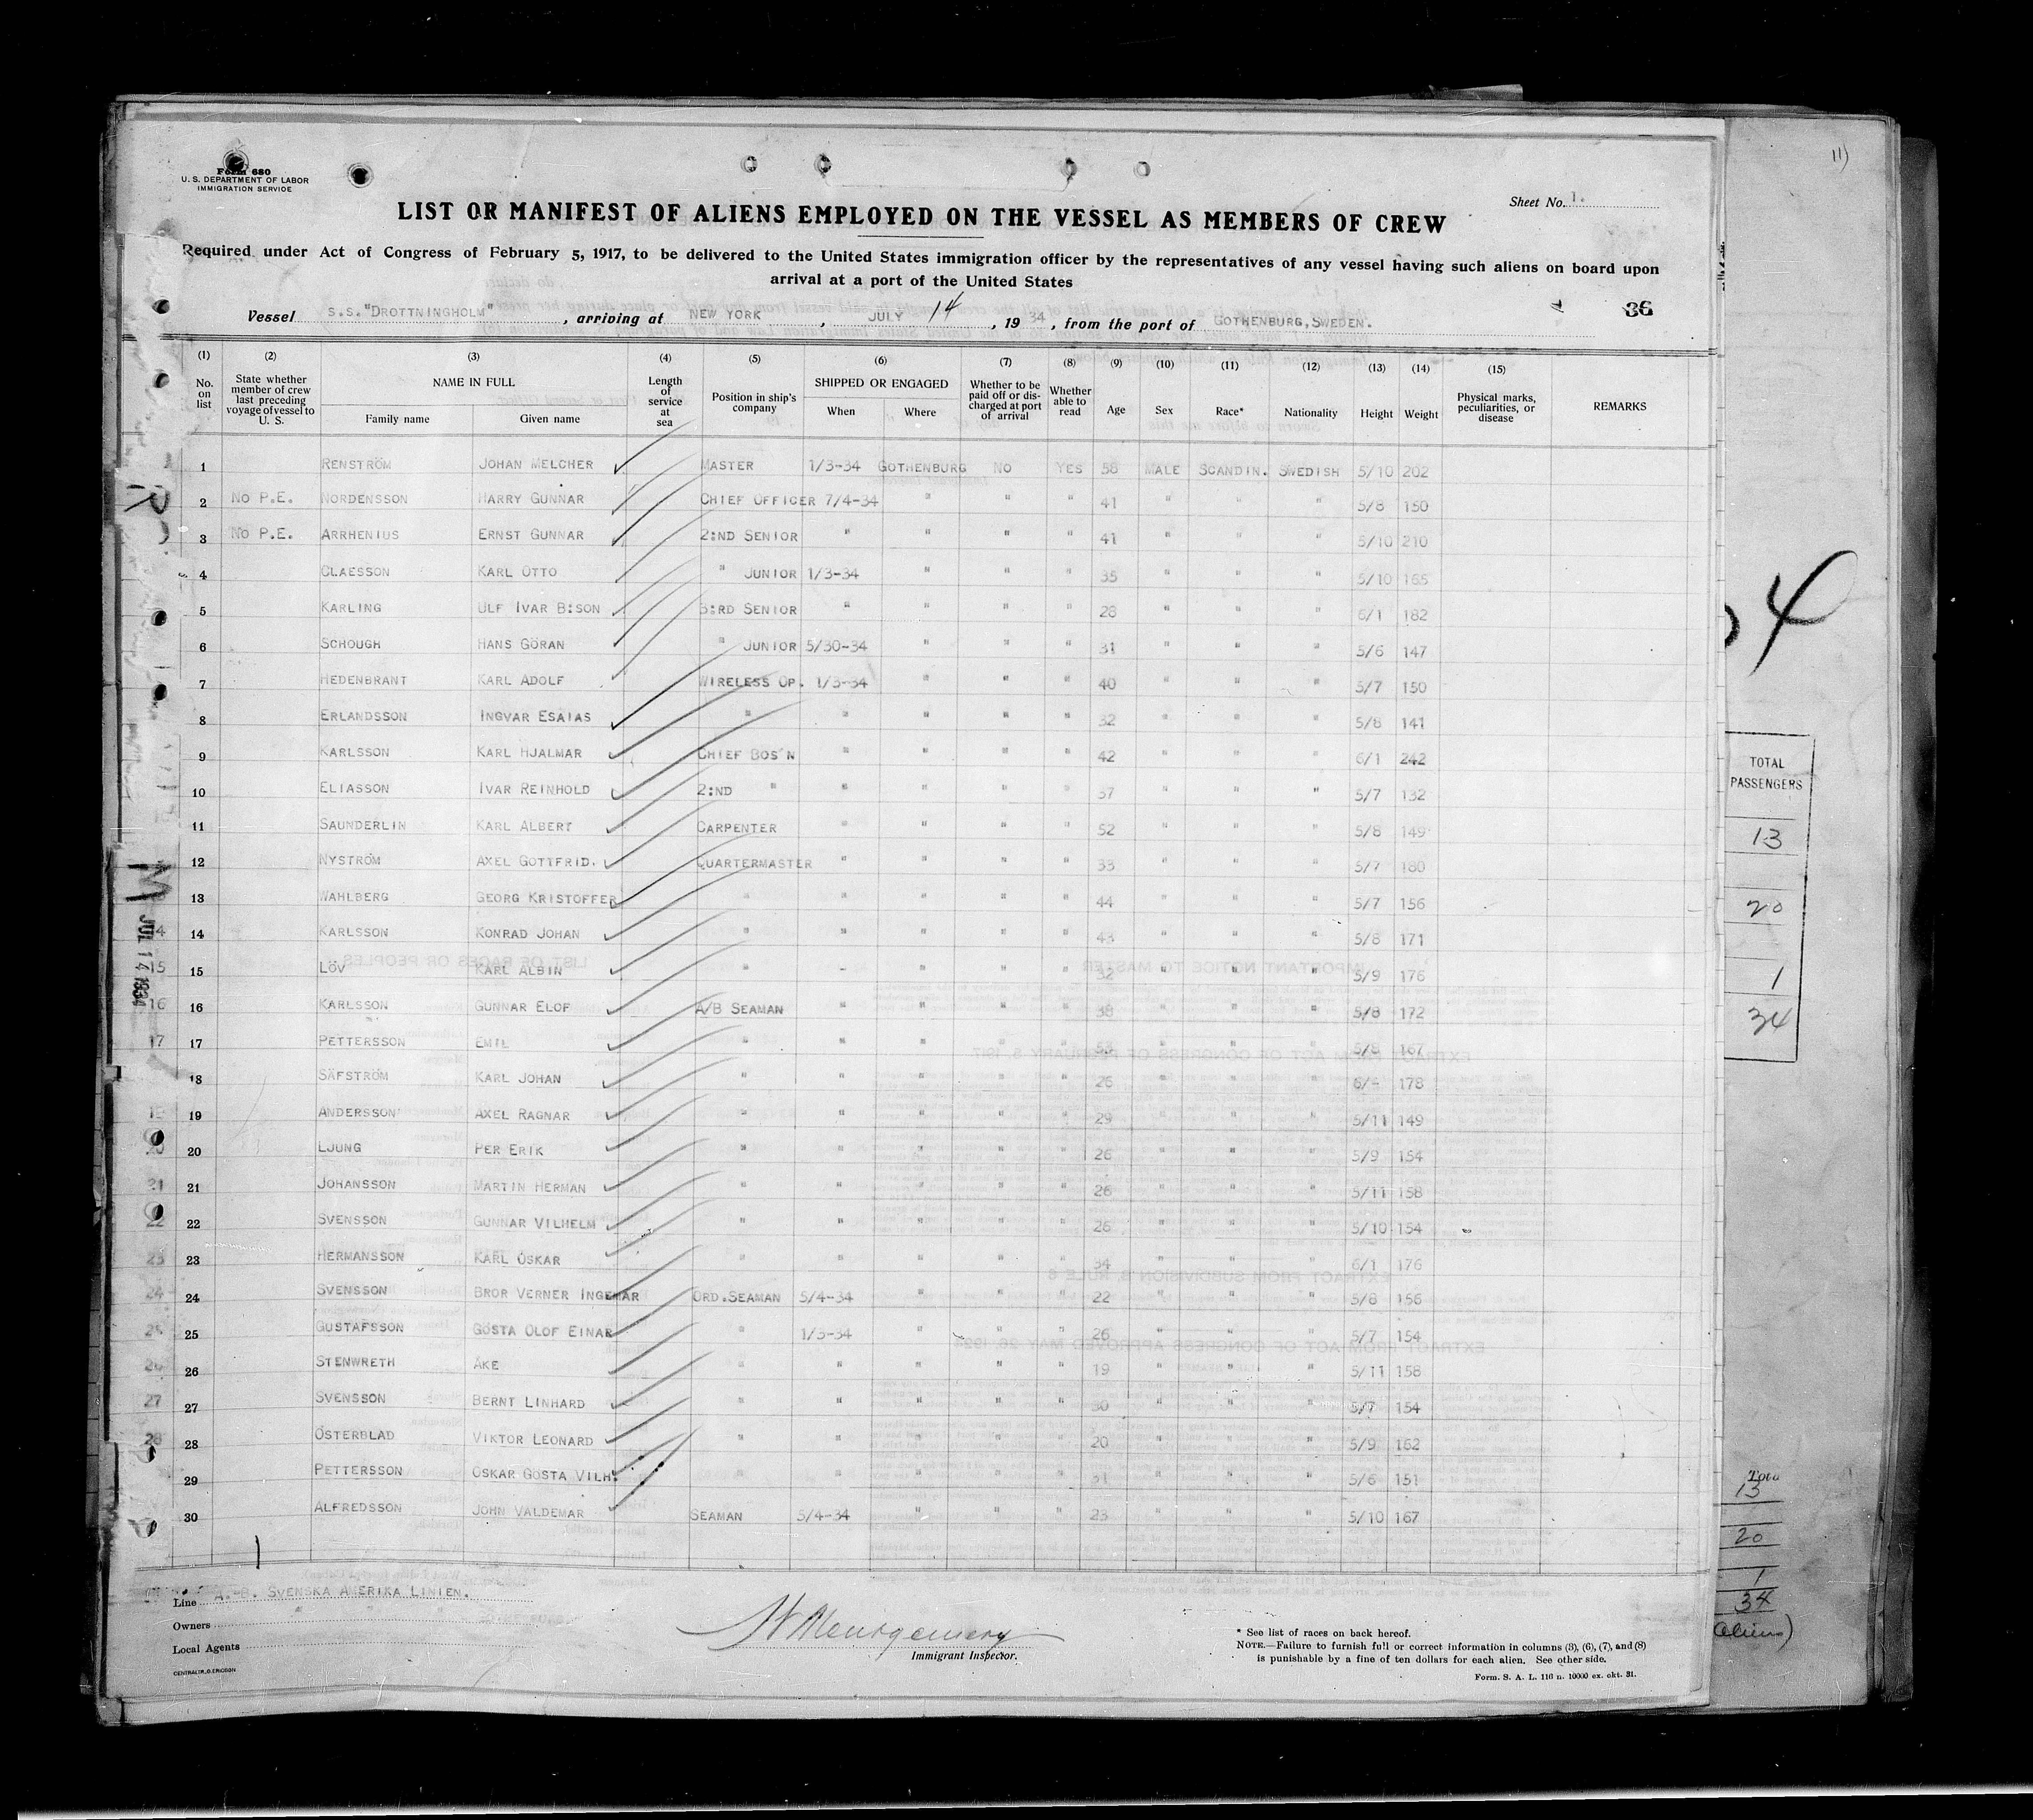 11)
Form 680
U. S. DEPARTMENT OF LABOR
IMMIGRATION SERVICE
Sheet No. 1.
LIST OR MANIFEST OF ALIENS EMPLOYED ON THE VESSEL AS MEMBERS OF CREW
Required under Act of Congress of February 5, 1917, to be delivered to the United States immigration officer by the representatives of any vessel having such aliens on board upon
arrival at a port of the United States
36
Vessel S.S. "DROTTNINGHOLM", arriving at NEW YORK, JULY 14, 1934, from the port of GOTHENBURG, SWEDEN.
(1) (2) (3) (4) (5) (6) (7) (8) (9) (10) (11) (12) (13) (14) (15)
No. on list State whether member of crew last preceding voyage of vessel to U. S. NAME IN FULL Family name Given name Length of service at sea Position in ship's company SHIPPED OR ENGAGED When Where Whether to be paid off or discharged at port of arrival Whether able to read Age Sex Race* Nationality Height Weight Physical marks, peculiarities, or disease REMARKS
1 RENSTRÖM JOHAN MELCHER MASTER 1/3-34 GOTHENBURG NO YES 58 MALE SCANDIN. SWEDISH 5/10 202
2 NO P.E. NORDENSSON HARRY GUNNAR CHIEF OFFICER 7/4-34 " " " 41 " " " 5/8 150
3 NO P.E. ARRHENIUS ERNST GUNNAR 2:ND SENIOR " " " " 41 " " " 5/10 210
4 CLAESSON KARL OTTO " JUNIOR 1/3-34 " " " 35 " " " 5/10 165
5 KARLING ULF IVAR B:SON 3:RD SENIOR " " " " 28 " " " 6/1 182
6 SCHOUGH HANS GÖRAN " JUNIOR 5/30-34 " " " 31 " " " 5/6 147
7 HEDENBRANT KARL ADOLF WIRELESS OP. 1/3-34 " " " 40 " " " 5/7 150
8 ERLANDSSON INGVAR ESAIAS " " " " " 32 " " " 5/8 141
9 KARLSSON KARL HJALMAR CHIEF BOS'N " " " " 42 " " " 6/1 242
10 ELIASSON IVAR REINHOLD 2:ND " " " " " 37 " " " 5/7 132
11 SAUNDERLIN KARL ALBERT CARPENTER " " " " 52 " " " 5/8 149
12 NYSTRÖM AXEL GOTTFRID. QUARTERMASTER " " " " 33 " " " 5/7 180
13 WAHLBERG GEORG KRISTOFFER " " " " " 44 " " " 5/7 156
14 KARLSSON KONRAD JOHAN " " " " " 43 " " " 5/8 171
15 LÖV KARL ALBIN " " " " " 32 " " " 5/9 176
16 KARLSSON GUNNAR ELOF A/B SEAMAN " " " " 38 " " " 5/8 172
17 PETTERSSON EMIL " " " " " 53 " " " 5/8 167
18 SÄFSTRÖM KARL JOHAN " " " " " 26 " " " 6/- 178
19 ANDERSSON AXEL RAGNAR " " " " " 29 " " " 5/11 149
20 LJUNG PER ERIK " " " " " 26 " " " 5/9 154
21 JOHANSSON MARTIN HERMAN " " " " " 26 " " " 5/11 158
22 SVENSSON GUNNAR VILHELM " " " " " 26 " " " 5/10 154
23 HERMANSSON KARL OSKAR " " " " " 34 " " " 6/1 176
24 SVENSSON BROR VERNER INGEMAR ORD.SEAMAN 5/4-34 " " " 22 " " " 5/8 156
25 GUSTAFSSON GÖSTA OLOF EINAR " 1/3-34 " " " 26 " " " 5/7 154
26 STENWRETH ÅKE " " " " " 19 " " " 5/11 158
27 SVENSSON BERNT LINHARD " " " " " 30 " " " 5/7 154
28 ÖSTERBLAD VIKTOR LEONARD " " " " " 20 " " " 5/9 162
29 PETTERSSON OSKAR GÖSTA VILH. " " " " " 31 " " " 5/6 151
30 ALFREDSSON JOHN VALDEMAR SEAMAN 5/4-34 " " " 23 " " " 5/10 167
JUL 14 1934
TOTAL
PASSENGERS
13
20
1
34
Total
13
20
1
34
(aliens)
Line A.-B. SVENSKA AMERIKA LINIEN.
Owners " " "
Local Agents
CENTRALTR. G. ERICSON
H Montgomery
Immigrant Inspector.
* See list of races on back hereof.
NOTE.—Failure to furnish full or correct information in columns (3), (6), (7), and (8)
is punishable by a fine of ten dollars for each alien. See other side.
Form. S. A. L. 116 n. 10000 ex. okt. 31.